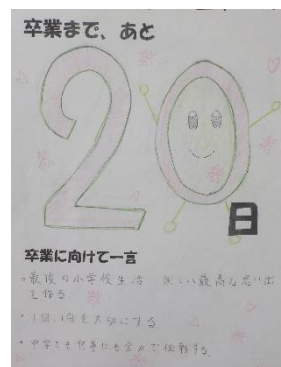 卒業まで、あと
20
日
卒業に向けて一言
・最後の小学校生活 楽しい最高な思い出
を作る
・1日1日を大切にする
・中学でも何事にも全力で挑戦する。